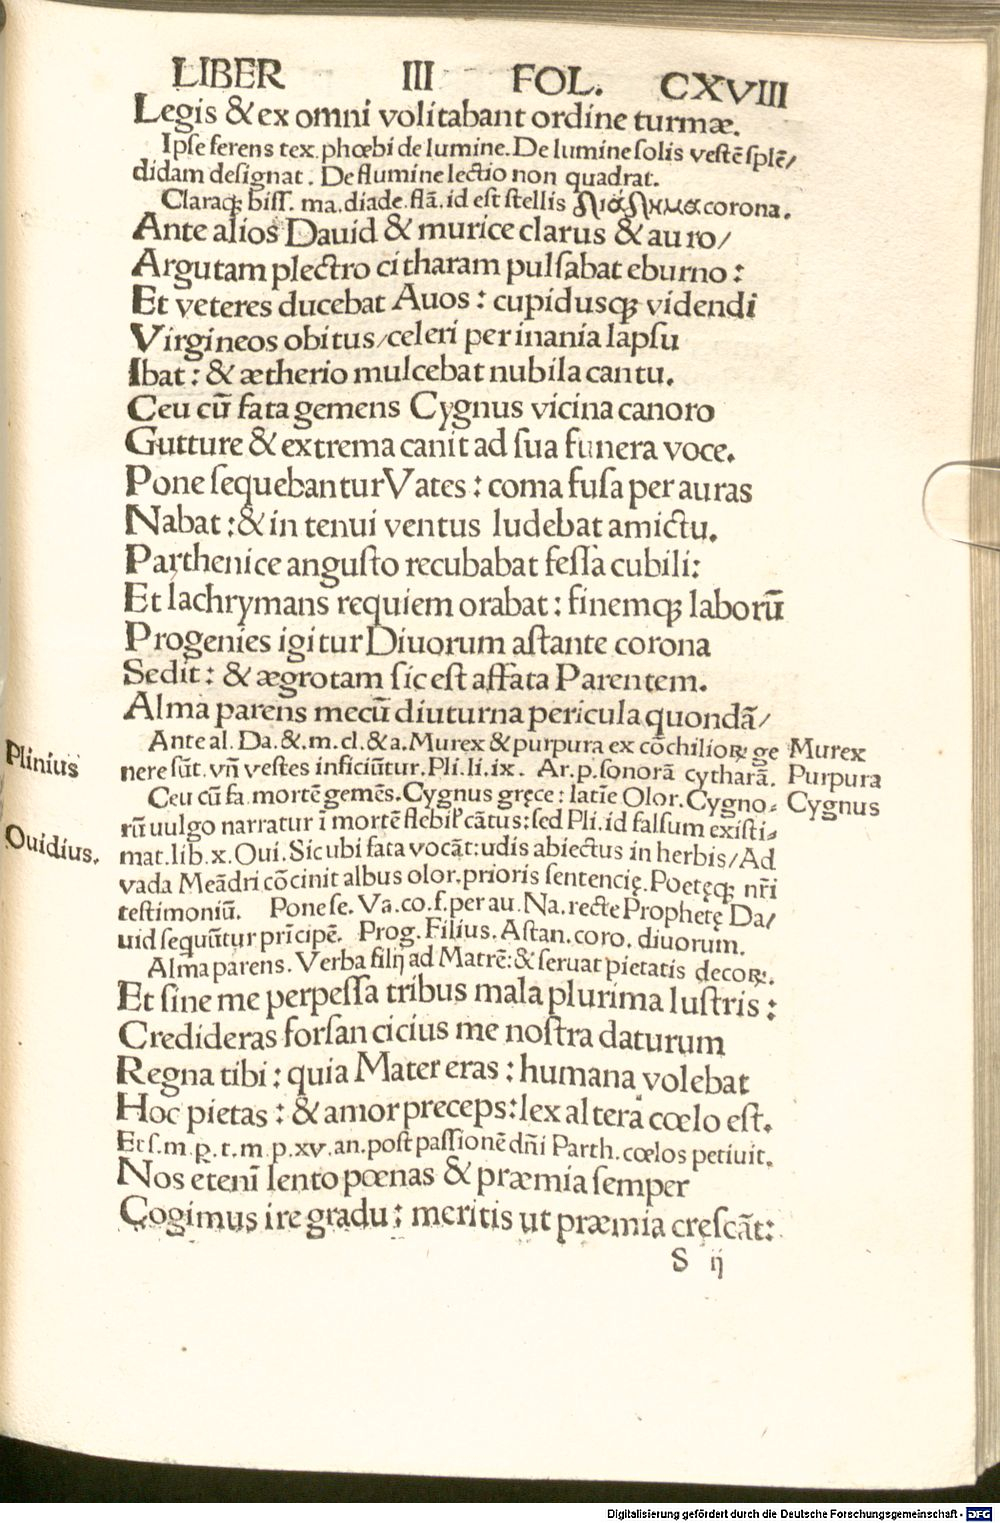 LIBER III FOL. CXVIII
Legis & ex omni volitabant ordine turmæ.
Ipſe ferens tex. phœbi de lumine. De lumine ſolis veſtē ſplē/
didam deſignat. De flumine lectio non quadrat.
Claraqꝫ biſſ. ma. diade. flā. id eſt ſtellis διάδημα corona.
Ante alios Dauid & murice clarus & auro/
Argutam plectro citharam pulſabat eburno:
Et veteres ducebat Auos: cupidusqꝫ videndi
Virgineos obitus/celeri per inania lapſu
Ibat: & ætherio mulcebat nubila cantu.
Ceu cū fata gemens Cygnus vicina canoro
Gutture & extrema canit ad ſua funera voce.
Pone ſequebantur Vates: coma fuſa per auras
Nabat: & in tenui ventus ludebat amictu.
Parthenice anguſto recubabat feſſa cubili:
Et lachrymans requiem orabat: finemqꝫ laborū
Progenies igitur Diuorum aſtante corona
Sedit: & ægrotam ſic eſt affata Parentem.
Alma parens mecū diuturna pericula quondā/
Ante al. Da. &. m. cl. & a. Murex & purpura ex cōchilioꝝ ge Murex
Plinius nere ſūt. vñ veſtes inficiūtur. Pli. li. ix. Ar. p. ſonorā cytharā. Purpura
Ceu cū fa. mortē gemēs. Cygnus gręce: latīe Olor. Cygno⸗ Cygnus
rū uulgo narratur ī mortē flebiꝉ cātus: ſed Pli. id falſum exiſti⸗
Ouidius. mat. lib. x. Oui. Sic ubi fata vocāt: udis abiectus in herbis/Ad
vada Meādri cōcinit albus olor. prioris ſentencię. Poetęqꝫ nr̄i
teſtimoniū. Pone ſe. Va. co. f. per au. Na. recte Prophetę Da/
uid ſequūtur prīcipē. Prog. Filius. Aſtan. coro. diuorum.
Alma parens. Verba filij ad Matrē: & ſeruat pietatis decoꝝ.
Et ſine me perpeſſa tribus mala plurima luſtris:
Credideras forſan cicius me noſtra daturum
Regna tibi: quia Mater eras: humana volebat
Hoc pietas: & amor preceps: lex altera cœlo eſt.
Et ſ. m. p. t. m. p. xv. an. poſt paſſionē dn̄i Parth. cœlos petiuit.
Nos etenī lento pœnas & præmia ſemper
Cogimus ire gradu: meritis ut præmia creſcāt:
S ij
Digitalisierung gefördert durch die Deutsche Forschungsgemeinschaft - DFG